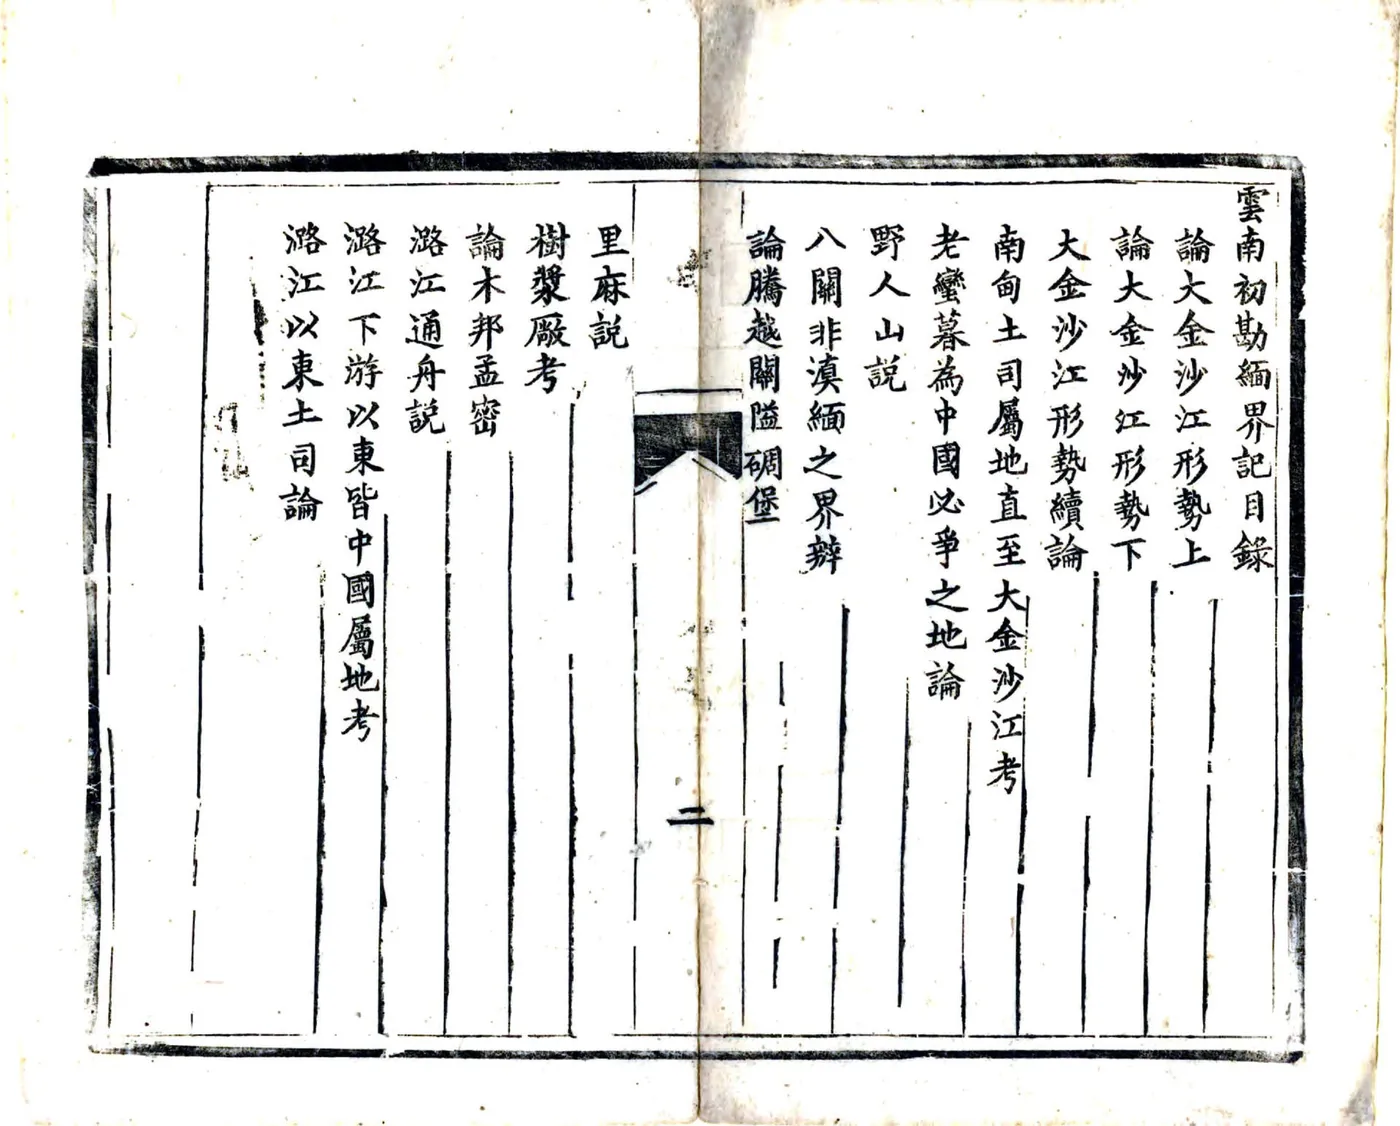 雲南初勘緬界記目錄
論大金沙江形勢上
論大金沙江形勢下
大金沙江形勢續論
南甸土司屬地直至大金沙江考
老蠻暮為中國必爭之地論
野人山説
八關非滇緬之界辨
論騰越關隘碉堡
二
里麻説
樹漿廠考
論木邦孟密
潞江通舟説
潞江下游以東皆中國屬地考
潞江以東土司論